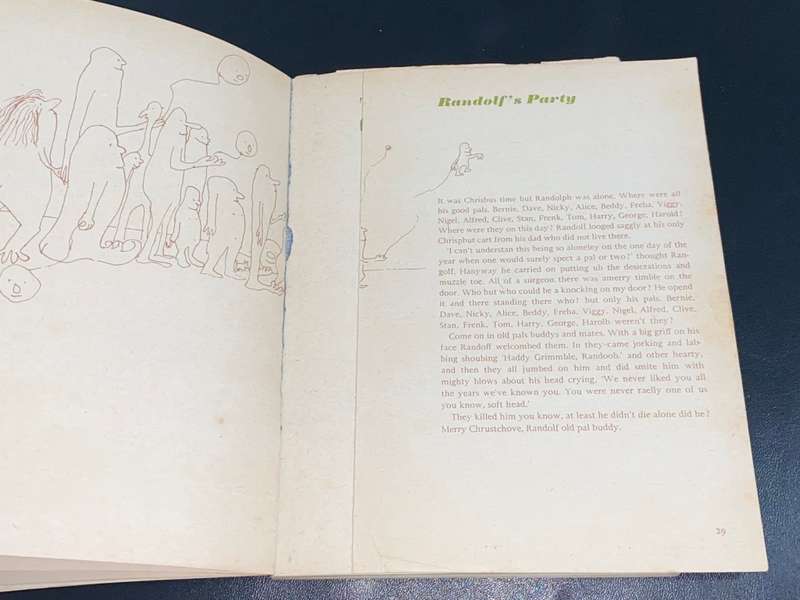 Randolf's Party
It was Chrisbus time but Randolph was alone. Where were all
his good pals. Bernie, Dave, Nicky, Alice, Beddy, Freba, Viggy,
Nigel, Alfred, Clive, Stan, Frenk, Tom, Harry, George, Harold?
Where were they on this day? Randolf looged saggly at his only
Chrispbut cart from his dad who did not live there.
'I can't understan this being so aloneley on the one day of the
year when one would surely spect a pal or two?' thought Ran-
golf. Hanyway he carried on putting ub the desicrations and
muzzle toe. All of a surgeon there was amerry timble on the
door. Who but who could be a knocking on my door? He opend
it and there standing there who? but only his pals. Bernie,
Dave, Nicky, Alice, Beddy, Freba, Viggy, Nigel, Alfred, Clive,
Stan, Frenk, Tom, Harry, George, Harolb weren't they?
Come on in old pals buddys and mates. With a big griff on his
face Randoff welcombed them. In they came jorking and lab-
bing shoubing 'Haddy Grimmble, Randoob.' and other hearty,
and then they all jumbed on him and did smite him with
mighty blows about his head crying, 'We never liked you all
the years we've known you. You were never raelly one of us
you know, soft head.'
They killed him you know, at least he didn't die alone did he?
Merry Chrustchove, Randolf old pal buddy.
29